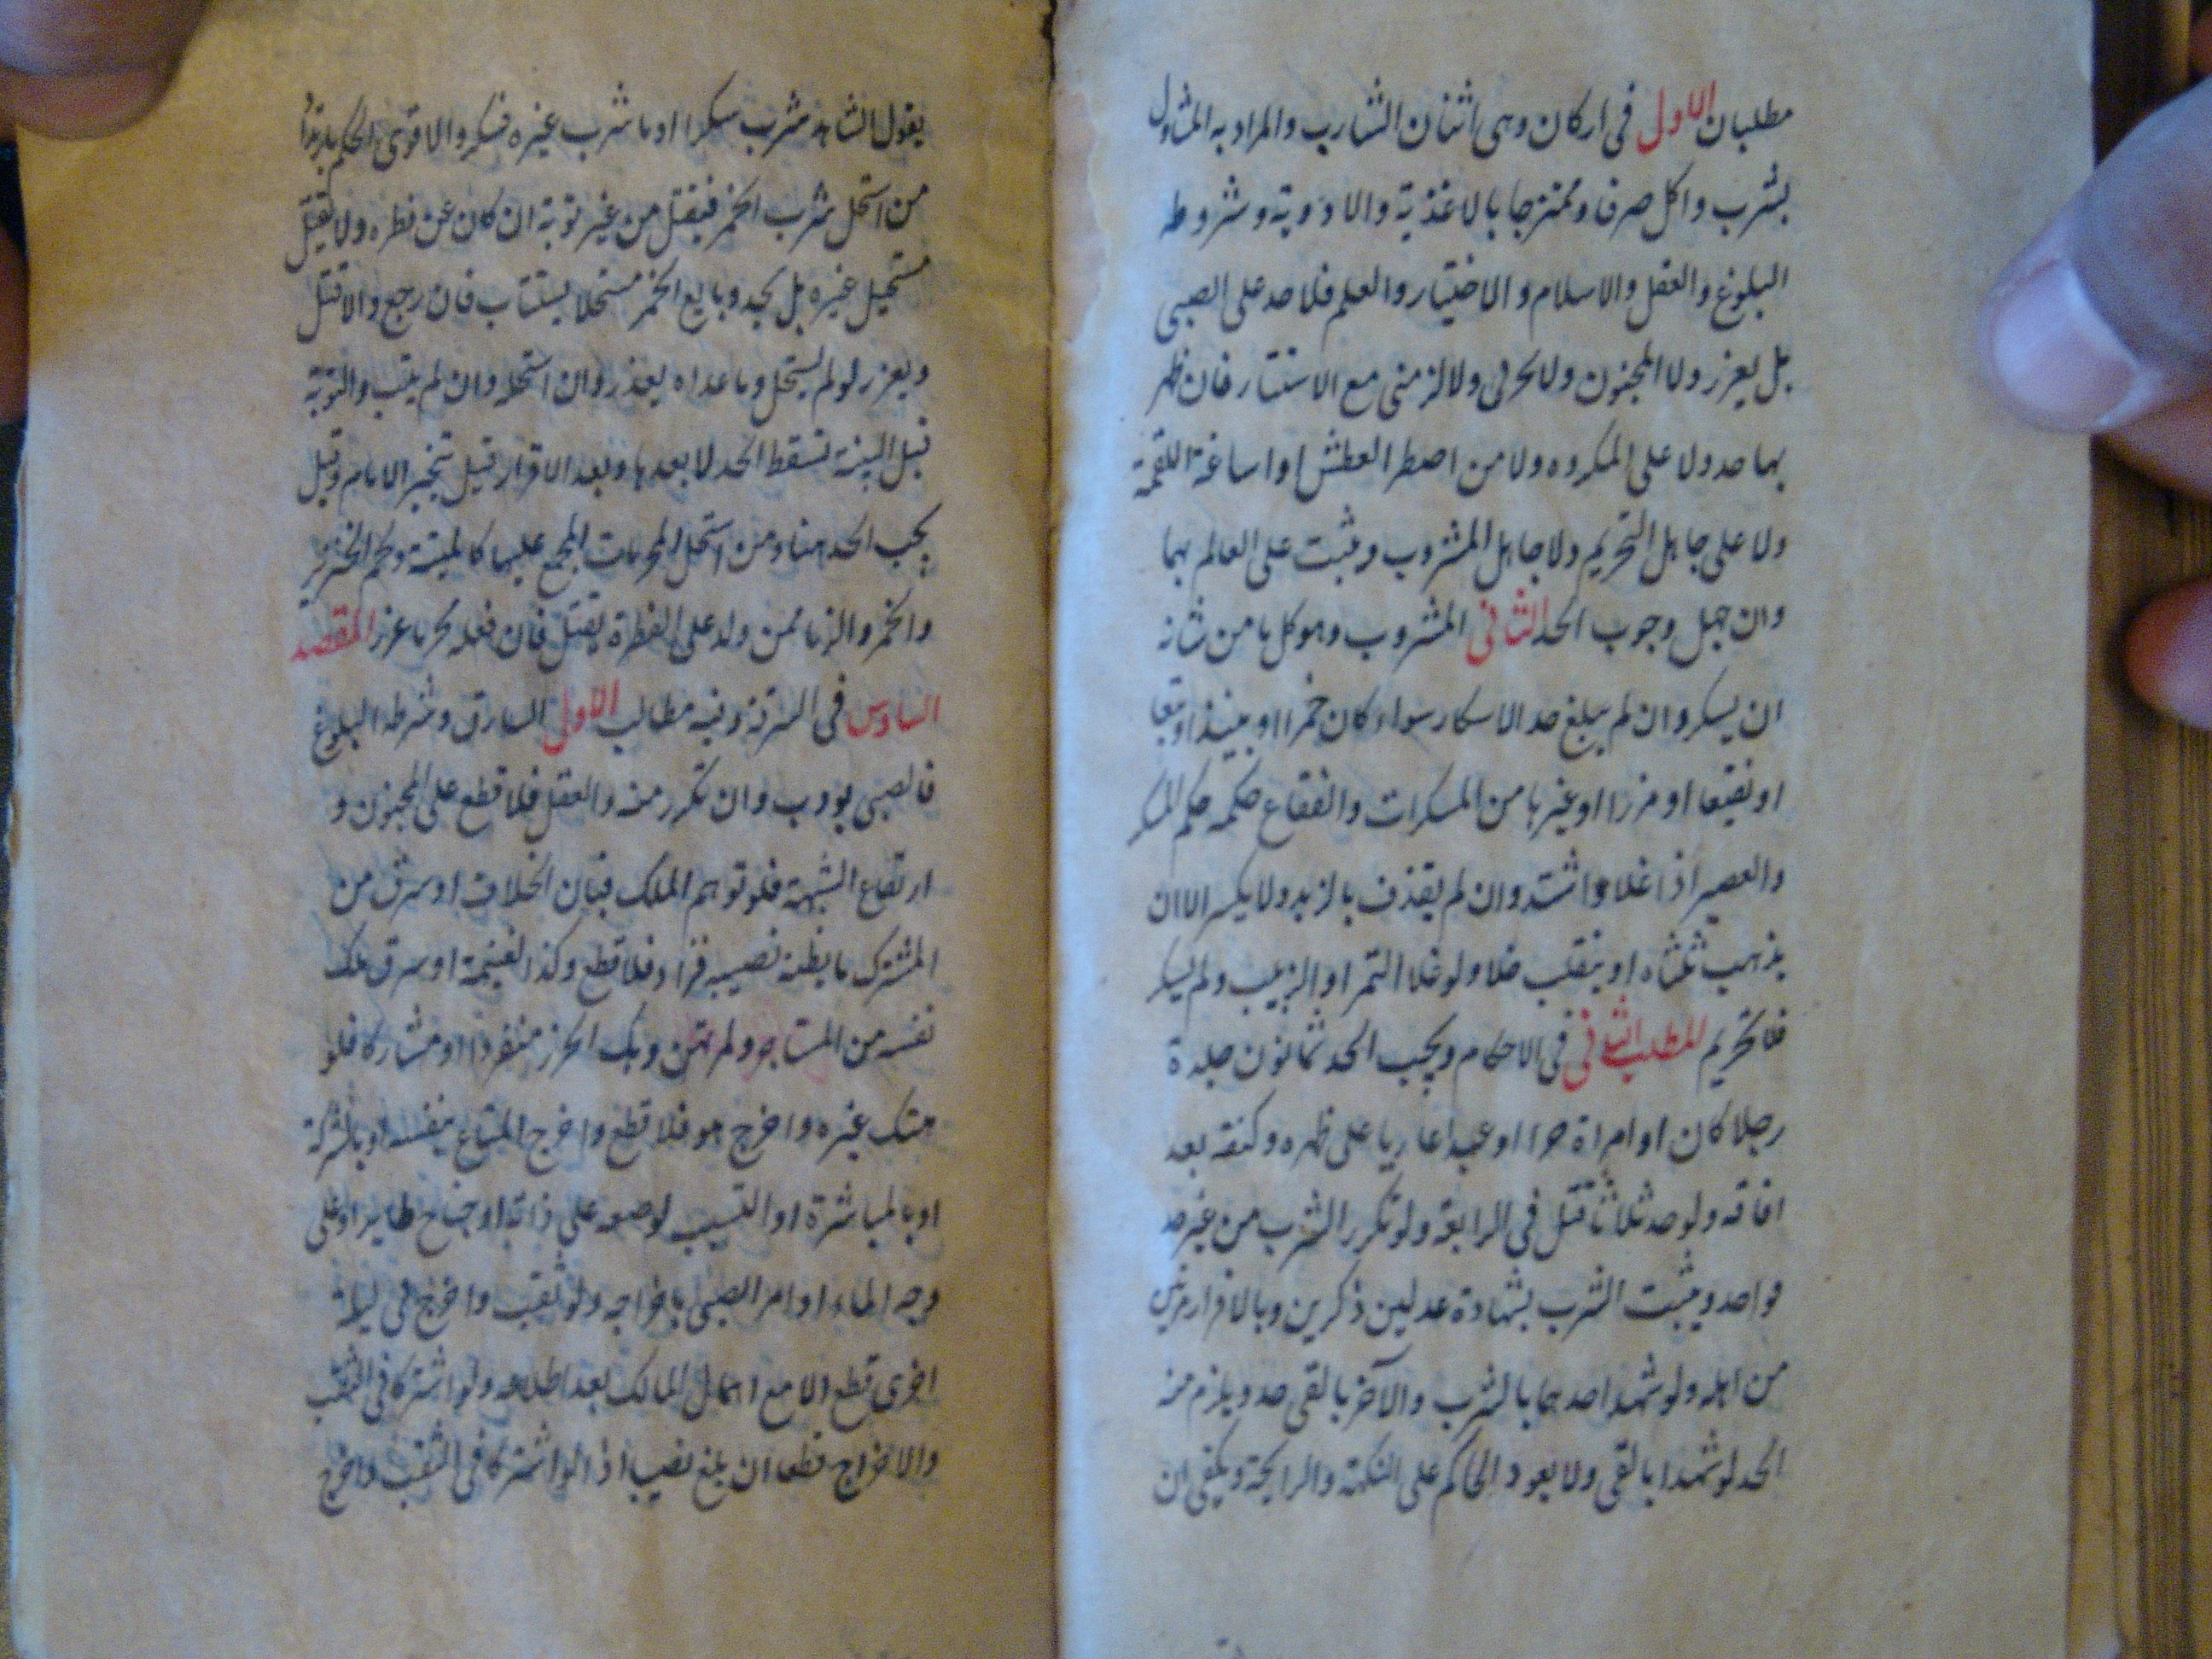 مطلبان الاول فى اركان وهى اثنان الشارب والمراد به المتناول
بشرب واكل صرفا وممتزجا بالاغذية والادوية وشروطه
البلوغ والعقل والاسلام والاختيار والعلم فلا حد على الصبى
بل يعزر ولا المجنون ولا لحربى ولا لذمى مع الاستتار فان ظهر
بها حد ولا على المكروه ولا من اضطر العطش او اساغة اللقمة
ولا على جاهل التحريم ولا جاهل المشروب ويثبت على العالم بهما
وان جهل وجوب الحد الثانى المشروب وهو كل ما من شانه
ان يسكر وان لم يبلغ حد الاسكار سواء كان خمرا او نبيذا او بتعا
او نقيعا او مزرا او غيرها من المسكرات والفقاع حكمه حكم المسكر
والعصير اذا غلا واشتد وان لم يقذف بالزبد ولا يكسر الا ان
يذهب ثلثاه او ينقلب خلا ولو غلا التمر او الزبيب ولم يسكر
فلا تحريم المطلب الثانى فى الاحكام ويجب الحد ثمانون جلدة
رجلا كان او امراة حرا او عبدا عاريا على ظهره وكتفه بعد
افاقه ولو حد ثلاثا قتل فى الرابعة ولو تكرر الشرب من غير حد
فواحد ويثبت الشرب بشهادة عدلين ذكرين وبالاقرار مرتين
من اهله ولو شهد احدهما بالشرب والآخر بالقى حد ويلزم منه
الحد لو شهدا بالقى ولا يعود الحاكم على النكهة والرايحة ويكفى ان
يقول الشاهد شرب مسكرا او ما شرب غيره فسكر والاقوى الحكم بارتداد
من استحل شرب الخمر فيقتل من غير توبة ان كان عن فطره ولا يقتل
مستحيل غيره بل يحد وبايع الخمر مستحلا يستتاب فان رجع والا قتل
ويعزر لو لم يستحل وما عداه يعذر وان استحله وان لم يتب والتوبة
قبل البينة تسقط الحد لا بعدها وبعد الاقرار قيل يتخير الامام وقيل
يجب الحد هنا ومن استحل المحرمات المجمع عليها كالميتة ولحم الخنزير
والخمر والزنا ممن ولد على الفطرة يقتل فان فعله محرما عزر المقصد
السادس فى السرقة وفيه مطالب الاول السارق وشرطه البلوغ
فالصبى يودب وان تكرر منه والعقل فلا قطع على المجنون و
ارتفاع الشبهة فلو توهم الملك فبان الخلاف او سرق من
المشترك ما يظنه نصيبه فزاد فلا قطع وكذا الغنيمة او سرق ملك
نفسه من المستاجر ولمرتهن وهتك الحرز منفردا او مشاركا فلو
هتك غيره واخرج هو فلا قطع واخرج المتاع بنفسه او بالشركة
او بالمباشرة او التسبيب لوضعه على دابة او جناح طاير او على
وجه الماء او امر الصبى باخراجه ولو ثقب واخرج فى ليلة
اخرى قطع الا مع اهمال المالك بعد اطلاعه ولو اشتركا فى الثقب
والاخراج قطعا ان بلغ نصيبا اذ الو اشتركا فى الثقب واخرج